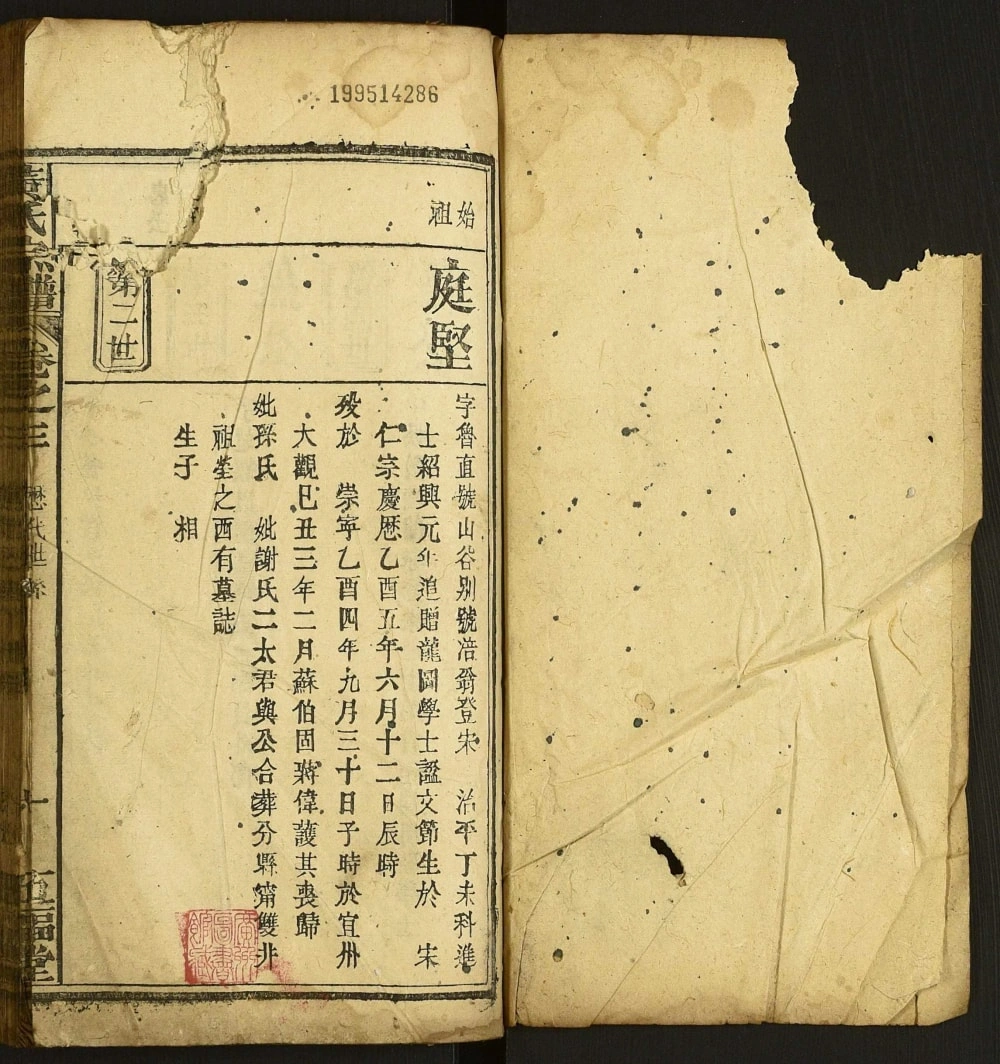 199514286
始祖
庭堅
字魯直號山谷别號涪翁登宋 治平丁未科進
士紹興元年追贈龍圖學士諡文節生於 宋
仁宗慶曆乙酉五年六月十二日辰時
歿於 崇寧乙酉四年九月三十日子時於宜州
大觀己丑三年二月蘇伯固蔣偉護其喪歸
妣孫氏 妣謝氏二太君與公合葬分縣雙井
祖塋之西有墓誌
生子 相
第二世
氏宗譜
卷之三
歷代世系
十
堂
圖書館藏